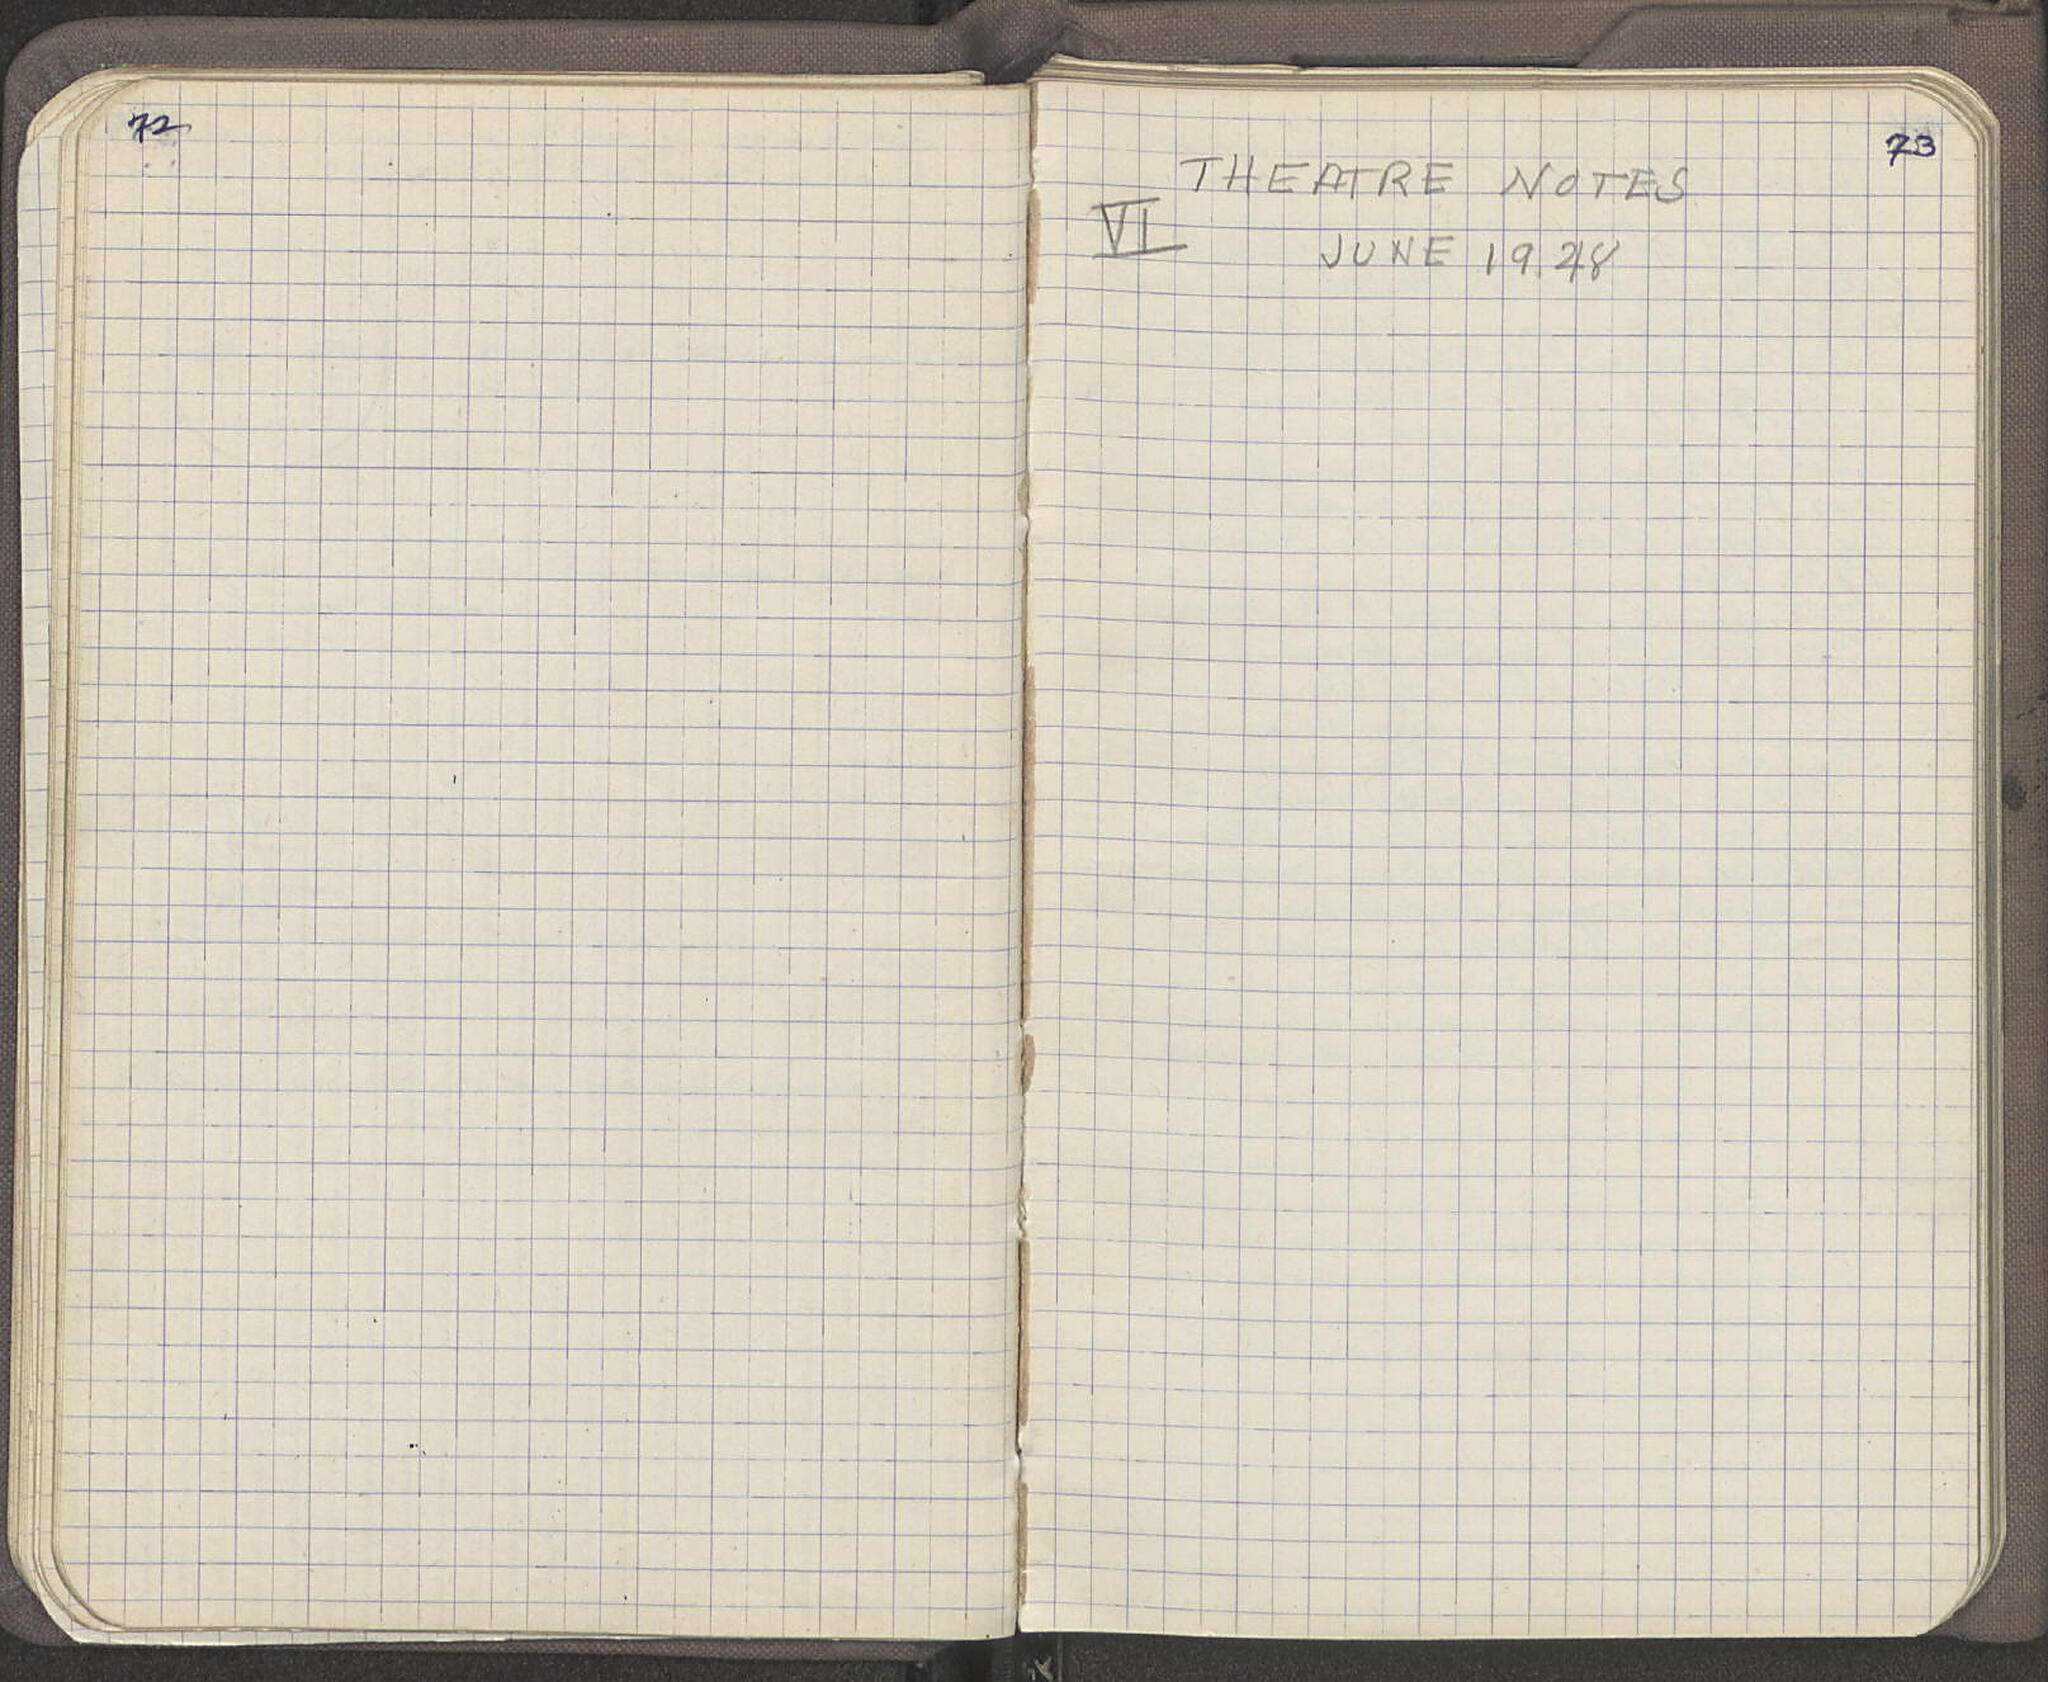 72
73
THEATRE NOTES
VI
JUNE 1948